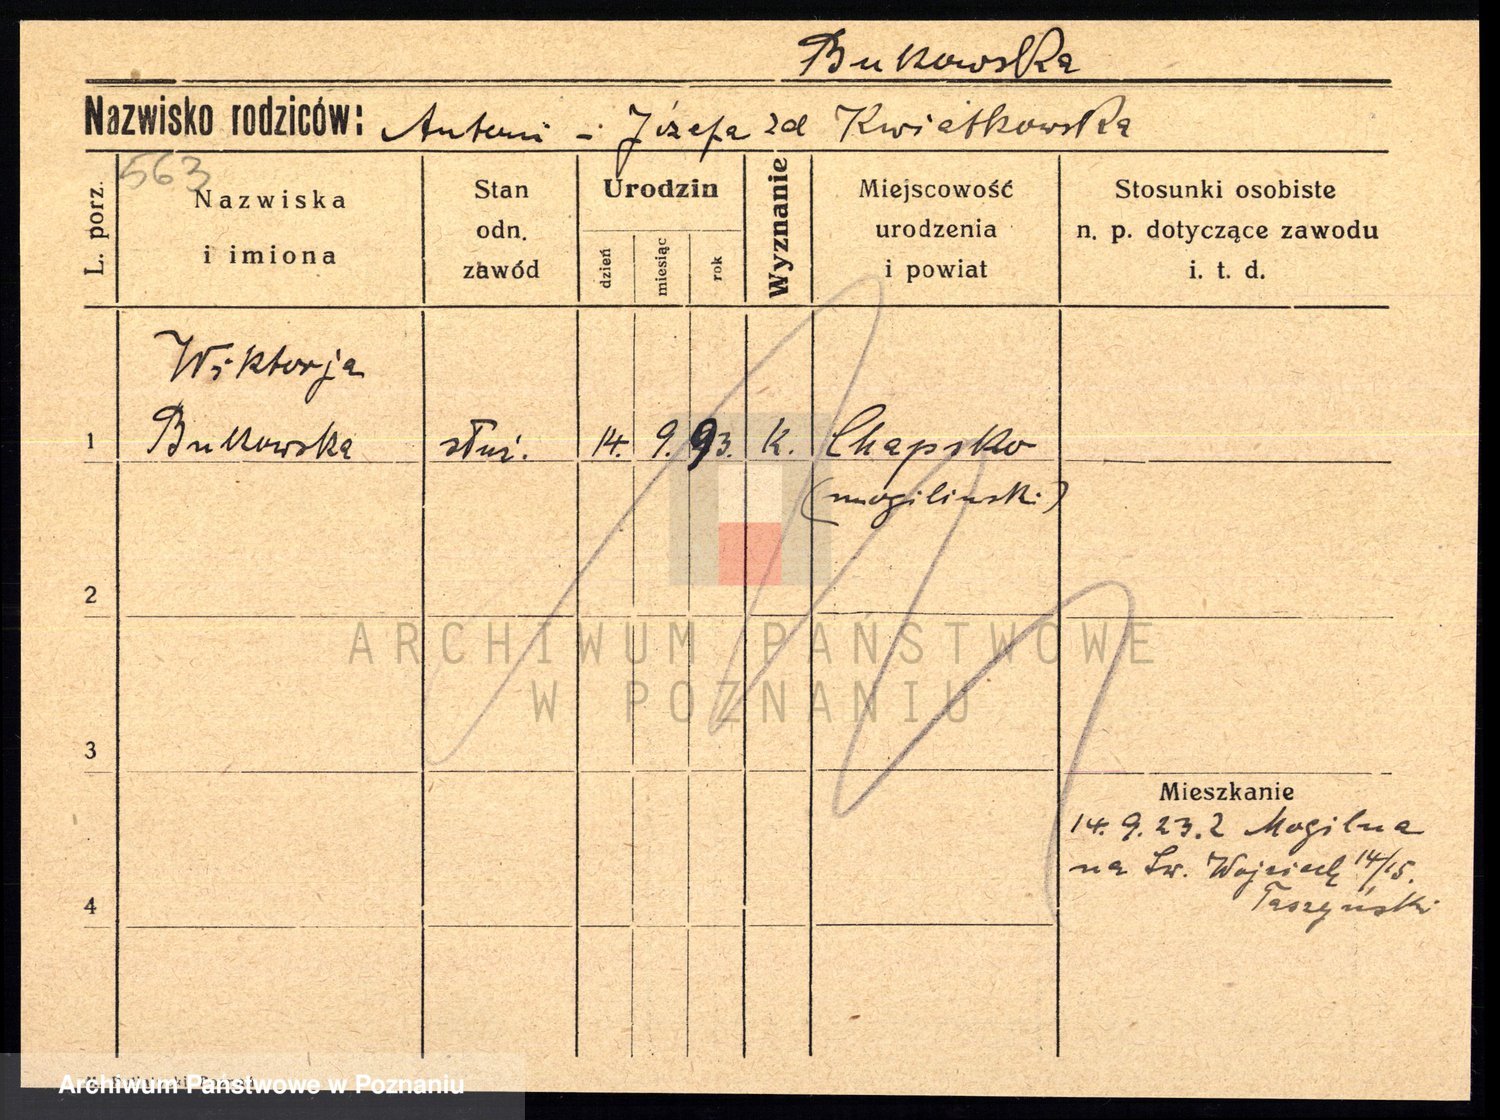 Bukowska
Nazwisko rodziców: Antoni – Józefa zd Kwiatkowska
563
L. porz.
Nazwiska
i imiona
Stan
odn.
zawód
Urodzin
dzień
miesiąc
rok
Wyznanie
Miejscowość
urodzenia
i powiat
Stosunki osobiste
n. p. dotyczące zawodu
i. t. d.
Wiktorja
1 Bukowska służ. 14. 9. 93. K. Chapsko
(mogilinski)
2
ARCHIWUM PAŃSTWOWE
W POZNANIU
3
Mieszkanie
14. 9. 23. z Mogilna
na Św. Wojciech 14/15.
4
Taszyński
Archiwum Państwowe w Poznaniu